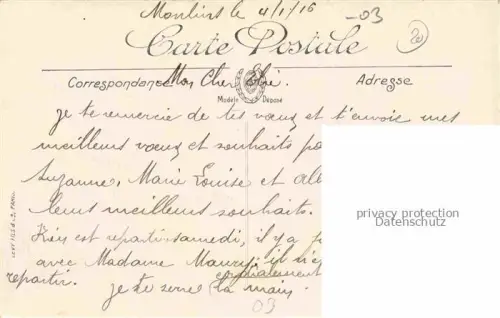 Moulins le 4/1/16
-03
20
Carte Postale
Correspondance
Adresse
Mon Cher
Modèle Déposé
Je te remercie de tes vœux et t'envoie mes
meilleurs vœux et souhaits
Suzanne, Marie Louise et
leurs meilleurs souhaits.
est reparti samedi, il y a
avec Madame Maury, il
repartir.
cordialement
je te serre la main
03
privacy protection
Datenschutz